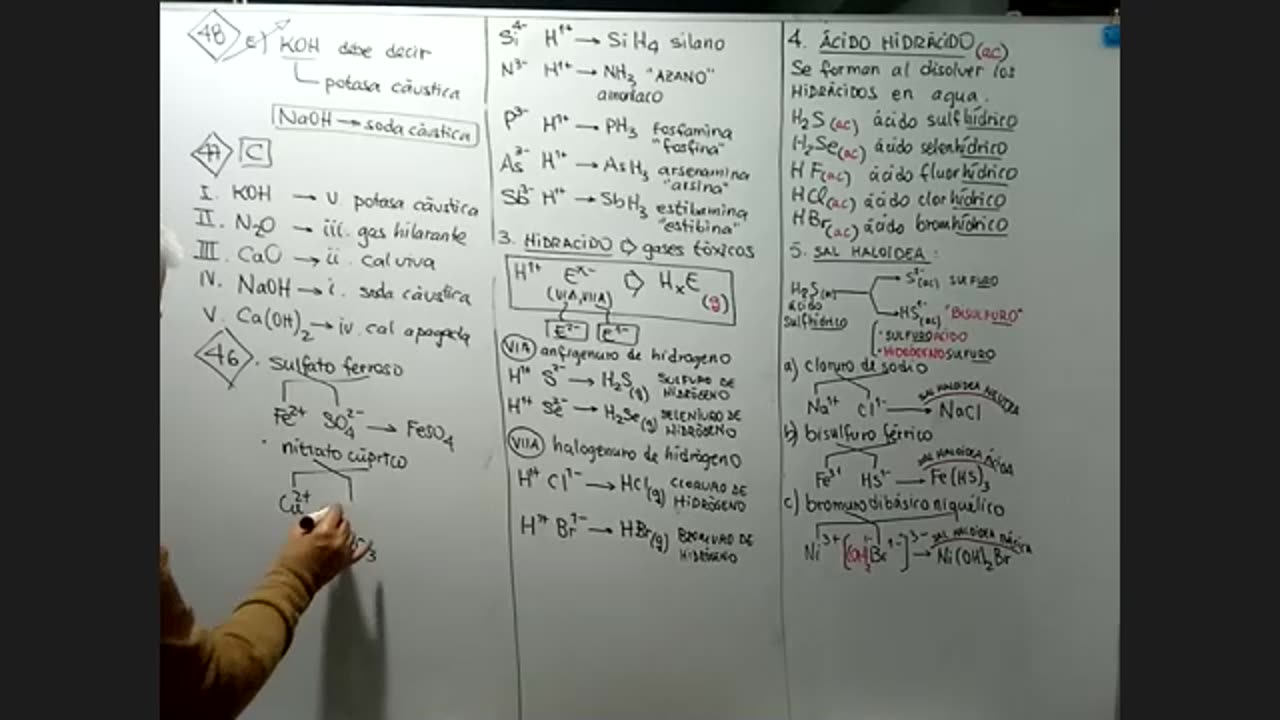 48 e) KOH debe decir
potasa cáustica
NaOH → soda cáustica
47 C
I. KOH → v potasa cáustica
II. N2O → iii. gas hilarante
III. CaO → ii. cal viva
IV. NaOH → i. soda cáustica
V. Ca(OH)2 → iv. cal apagada
46 · sulfato ferroso
Fe2+ SO4 2- → FeSO4
· nitrato cúprico
Cu2+
3
Si4- H1+ → SiH4 silano
N3- H1+ → NH3 "AZANO"
amoniaco
P3- H1+ → PH3 fosfamina
"fosfina"
As3- H1+ → AsH3 arsenamina
"arsina"
Sb3- H1+ → SbH3 estibamina
"estibina"
3. HIDRÁCIDO ⇨ gases tóxicos
H1+ Ex- ⇨ HxE (g)
(VIA, VIIA)
E2- E1-
VIA anfigenuro de hidrógeno
H1+ S2- → H2S(g) SULFURO DE
HIDRÓGENO
H1+ Se2- → H2Se(g) SELENIURO DE
HIDRÓGENO
VIIA halogenuro de hidrógeno
H1+ Cl1- → HCl(g) CLORURO DE
HIDRÓGENO
H1+ Br1- → HBr(g) BROMURO DE
HIDRÓGENO
4. ÁCIDO HIDRÁCIDO (ac)
Se forman al disolver los
HIDRÁCIDOS en agua.
H2S(ac) ácido sulfhídrico
H2Se(ac) ácido selenhídrico
HF(ac) ácido fluorhídrico
HCl(ac) ácido clorhídrico
HBr(ac) ácido bromhídrico
5. SAL HALOIDEA:
S2-(ac) SULFURO
H2S(ac)
ácido
sulfhídrico
HS1-(ac) "BISULFURO"
· SULFURO ÁCIDO
· HIDRÓGENO SULFURO
a) cloruro de sodio
Na1+ Cl1- → NaCl SAL HALOIDEA NEUTRA
b) bisulfuro férrico
Fe3+ HS1- → Fe(HS)3 SAL HALOIDEA ÁCIDA
c) bromuro dibásico niquélico
Ni3+ [(OH)2 1- Br1-]3- → Ni(OH)2Br SAL HALOIDEA BÁSICA